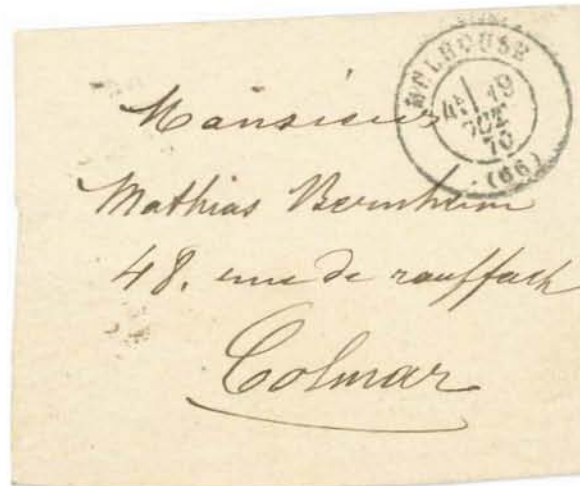 MULHOUSE
4E 19
OCT
70
(66)
Monsieur
Mathias Bernheim
48. rue de rouffach
Colmar